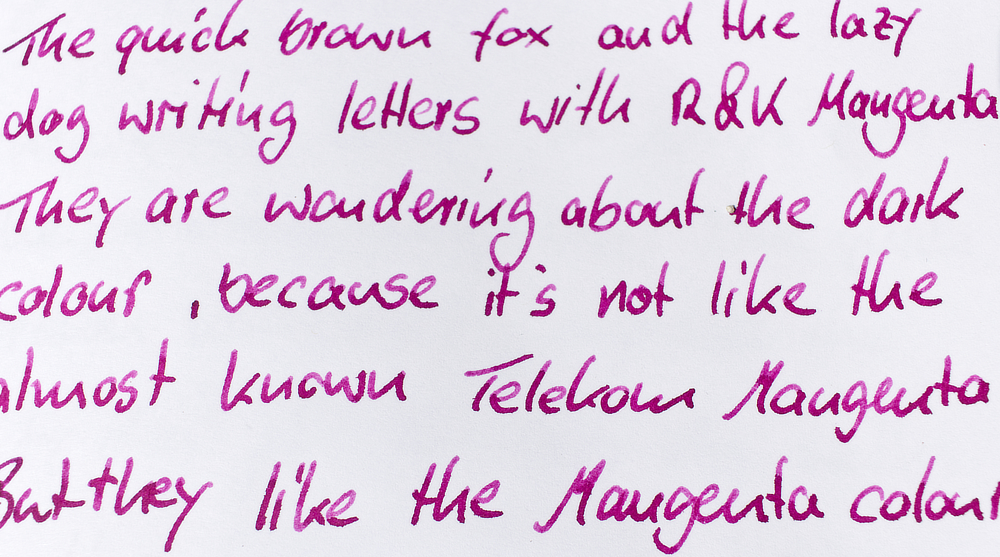 The quick brown fox and the lazy
dog writing letters with R&K Mangenta
They are wondering about the dark
colour , because it's not like the
almost known Telekom Mangenta
But they like the Mangenta colour